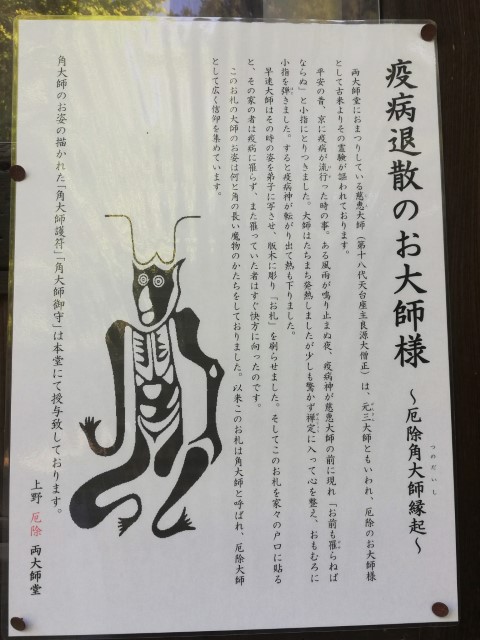 疫病退散のお大師様 ～厄除角大師縁起～
つのだいし
両大師堂におまつりしている慈恵大師（第十八代天台座主良源大僧正）は、元三大師ともいわれ、厄除のお大師様
として古来よりその霊験が謳われております。
平安の昔、京に疫病が流行った時の事。ある風雨が鳴り止まぬ夜、疫病神が慈恵大師の前に現れ「お前も罹らねば
ならぬ」と小指にとりつきました。大師はたちまち発熱しましたが少しも驚かず禅定に入って心を整え、おもむろに
小指を弾きました。すると疫病神が転がり出て熱も下りました。
早速大師はその時の姿を弟子に写させ、版木に彫り「お札」を刷らせました。そしてこのお札を家々の戸口に貼る
と、その家の者は疫病に罹らず、また罹っていた者はすぐ快方に向ったのです。
このお札の大師のお姿は何と角の長い魔物のかたちをしておりました。以来このお札は角大師と呼ばれ、厄除大師
として広く信仰を集めています。
角大師のお姿の描かれた「角大師護符」「角大師御守」は本堂にて授与致しております。
上野 厄除 両大師堂